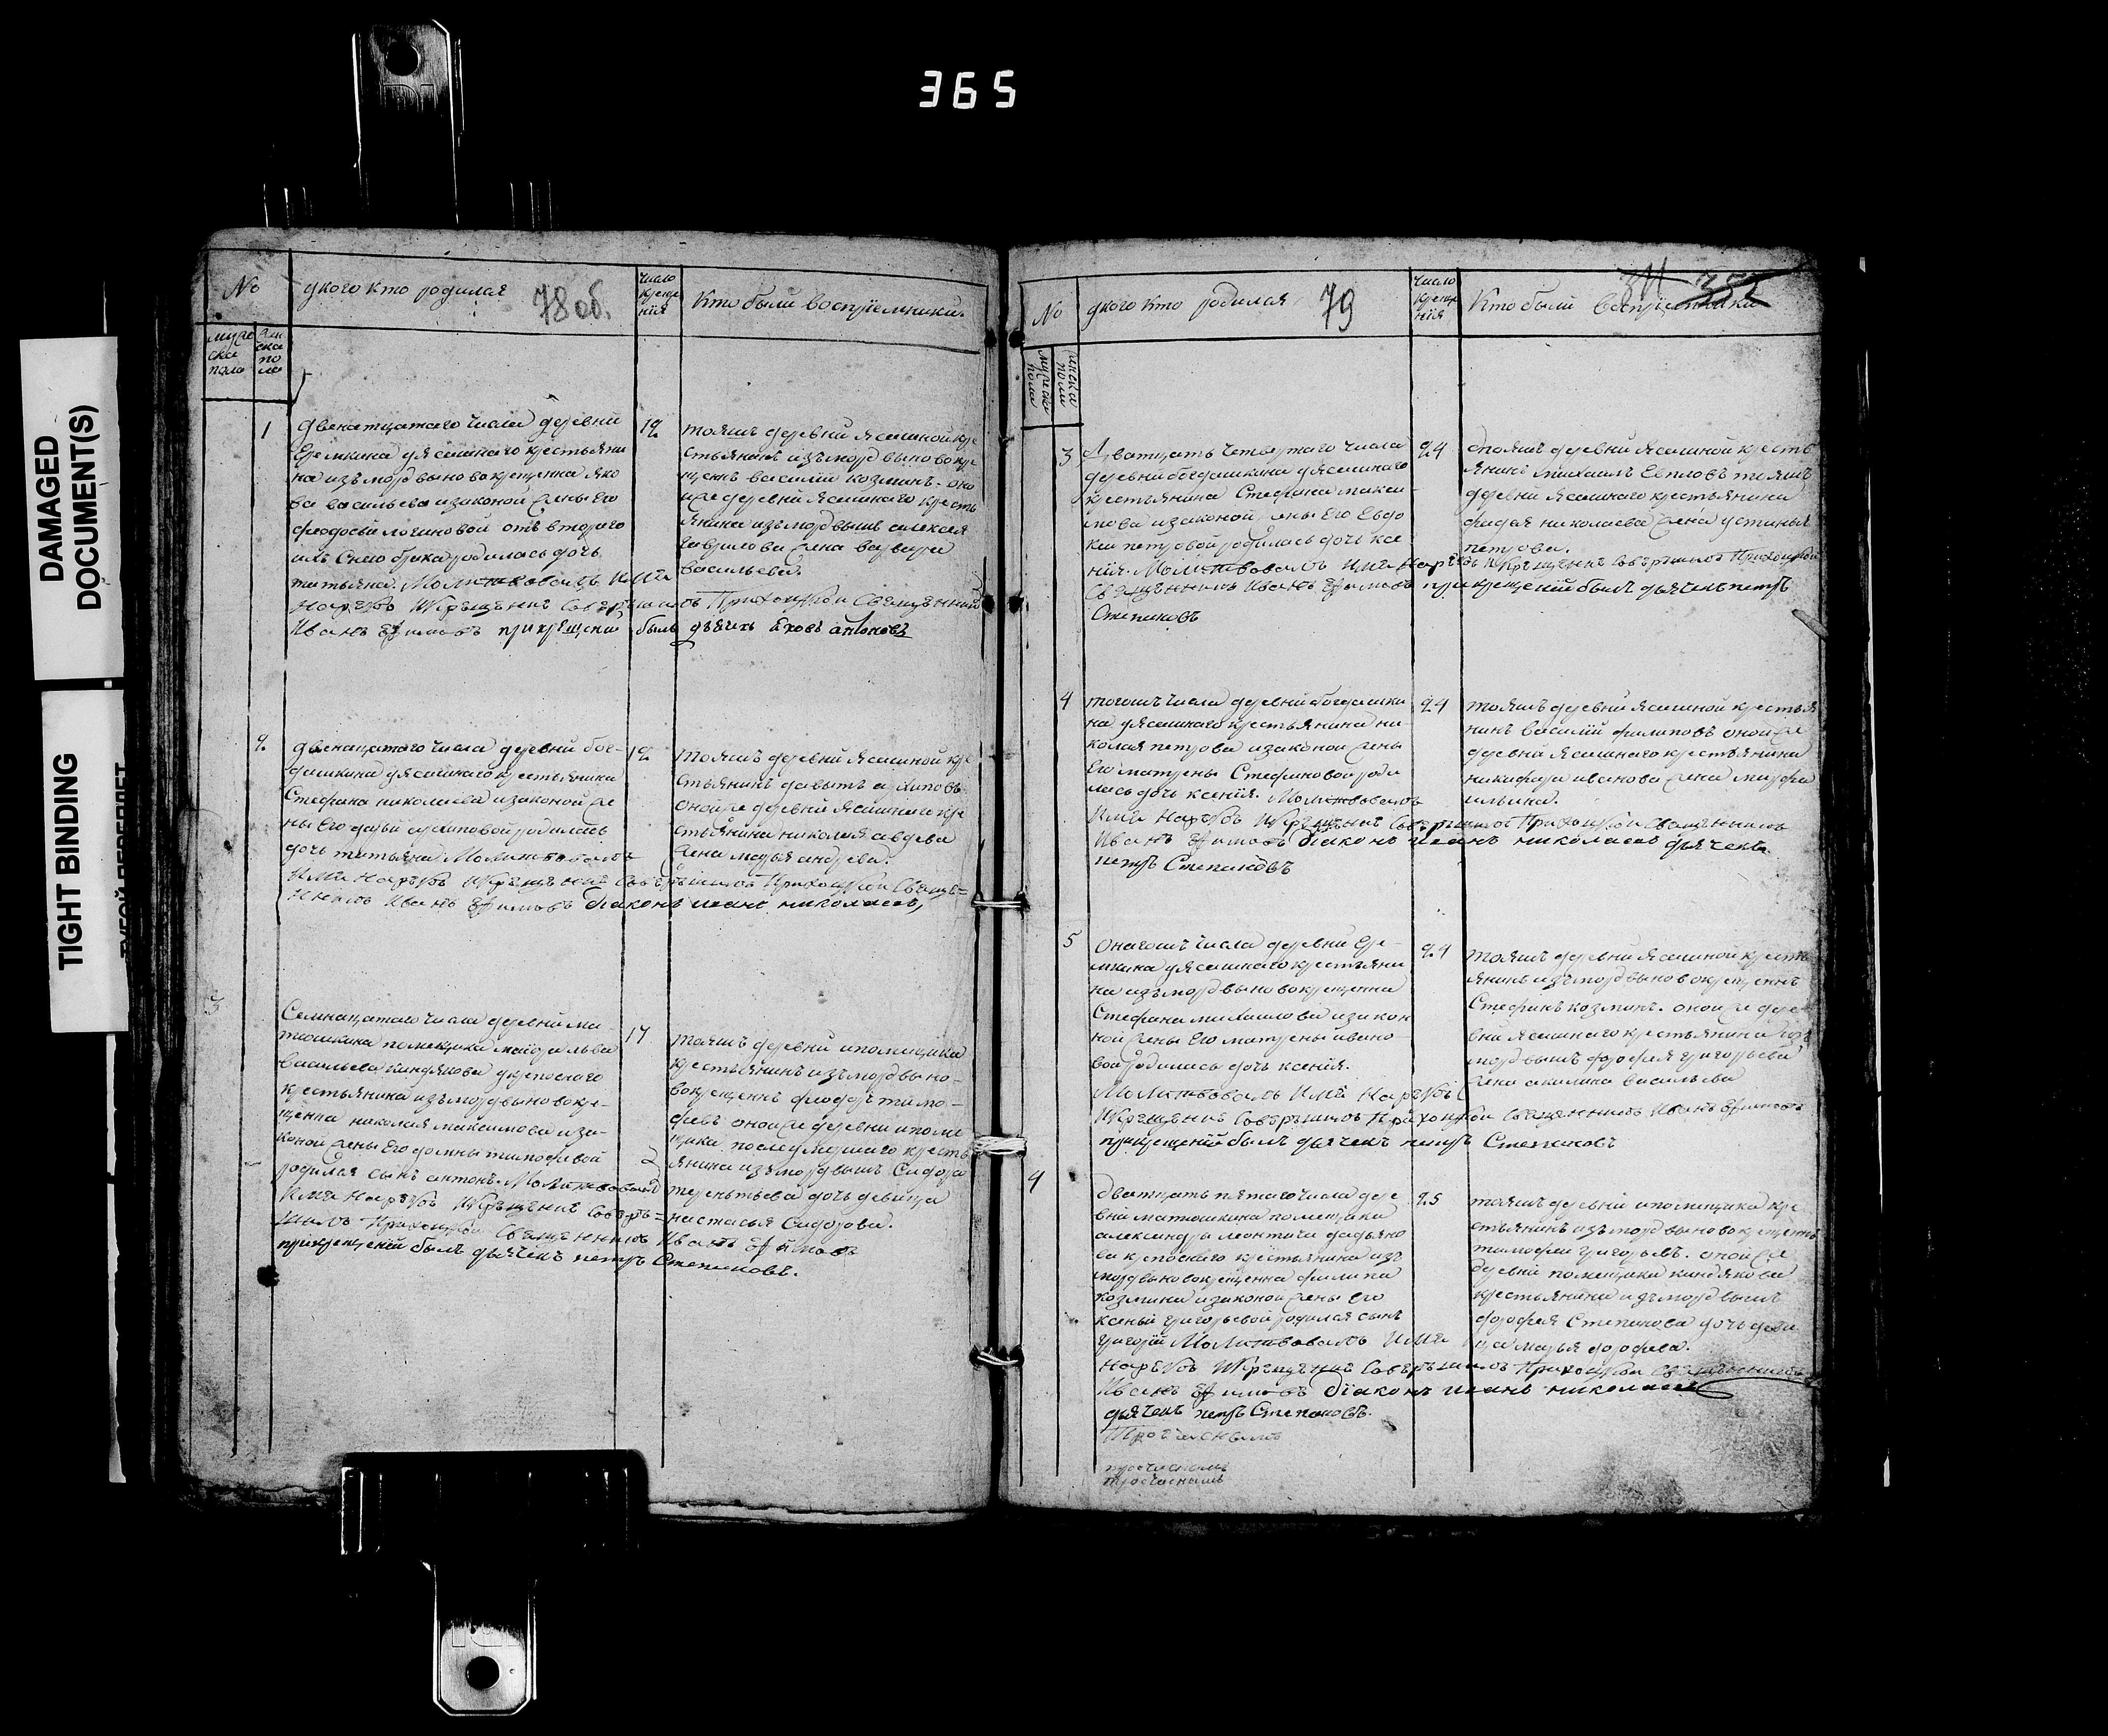 365
DAMAGED
DOCUMENT(S)
TIGHT BINDING
ТУГОЙ ПЕРЕПЛЕТ
№
укого кто родился
78 об.
число
креще
нія
кто были воспріемники.
муже
ска
пола
1
двенатцатого числа деревни
Еремкина уясашного крестьяни
на изъ морд выновокрещенна яко
ва васильева изаконой жены Его
феодосьи логиновой отъ второго
родилась дочь
татьяна. Молитвовалъ имя
нарѣкъ Икрѣщѣние Совѣршилъ Приходцкой Свѧщѣнникъ
Иванъ Ефимовъ при крещении былъ дьячекъ яковъ антоновъ
12
тояжъ деревни ясашной кре
стьянинъ изъ морд выновокре
щенъ василий козминъ. оно
иже деревни ясашного кресть
янина изъ мордвышъ алексея
гаврилова жена варвара
васильева.
2
двенацатого числа деревни бог-
дашкина уясашного крестьянина
Стефана николаева изаконой же
ны Его дарьи архиповой родилась
дочь татьяна Молитвовалъ
имя нарѣкъ Икрѣщѣние Совѣршилъ Приходцкой Свѧщѣ=
нникъ Иванъ Ефимовъ діаконъ иванъ николаевъ,
12
тояжъ деревни ясашной кре
стьянинъ давытъ архиповъ
онойже деревни ясашного кре
стьянина николая авдеева
жена марья андреева.
3
Семнацатого числа деревни ма
тюшкина помещика маиора льва
васильева киндякова укрепосного
крестьянина изъ морд выновокре-
щенна николая максимова иза-
коной жены Его домны тимофевой
родился сынъ антонъ. Молитвовалъ
имя нарѣкъ Икрѣщѣние Совѣрь=
шилъ Приходцкой Свѧщѣнникъ Иванъ Ефимовъ
прикрещении былъ дьячекъ петръ Степановъ.
17
тояжъ деревни ипомещика
крестьянинъ изъ морд выно-
вокрещенъ феодоръ тимо-
феевъ онойже деревни ипоме
щика последмерного кресть
янина изъ мордвышъ Сидора
терентьева дочь девица
настасья Сидорова.
№
укого кто родился
79
число
креще
нія
кто были воспріемники
3
Дватцать четвертого числа
деревни богдашкина уясашного
крестьянина Стефана макси
мова изаконой жены Его Евдо
кеи петровой родилась дочь ксе
нія. Молитвовалъ имя нарѣкъ Икрѣщѣние Совѣршилъ Приходцкой
Свѧщѣнникъ Иванъ Ефимовъ прикрещении былъ дьячекъ петръ
Степановъ
24
тояжъ деревни ясашной кресть
янинъ михаилъ Евпловъ тояжъ
деревни ясашного крестьянина
федора николаева жена устинья
петрова.
4
тогожъ числа деревни богдашки
на уясашного крестьянина ни
колая петрова изаконой жены
Его матрены Стефановой роди
лась дочь ксенія. Молитвовалъ
имя нарѣкъ Икрѣщѣние Совѣршилъ Приходцкой Свѧщѣнникъ
Иванъ Ефимовъ діаконъ иванъ николаевъ дьячекъ
петръ Степановъ
24
тояжъ деревни ясашной крестья
нинъ василий филиповъ онойже
деревни ясашного крестьянина
никифора иванова жена марфа
ильина.
5
Оногожъ числа деревни Ере-
мкина уясашного крестьяни
на изъ морд выновокрещенна
Стефана михаилова изакон
ной жены Его матрены ивано
вой родилась дочь ксенія.
Молитвовалъ имя нарѣкъ
Икрѣщѣние Совѣршилъ Приходцкой Свѧщѣнникъ Иванъ Ефимовъ
прикрещении былъ дьячекъ петръ Степановъ
24
тояжъ деревни ясашной кресть
янинъ изъ морд выновокрещенъ
Стефанъ козминъ. онойже дере
вни ясашного крестьянина изъ
мордвышъ дорофея григорьева
жена акилина васильева
4
дватцать пятого числа дере
вни матюшкина помещика
александра леонтича
ва крепосного крестьянина изъ
морд выновокрещенна филипа
козмина изаконой жены Его
ксеньи григорьевой родился сынъ
григорій Молитвовалъ имя
нарѣкъ Икрѣщѣние Совѣршилъ Приходцкой Свѧщѣнникъ
Иванъ Ефимовъ діаконъ иванъ николаевъ
дьячекъ петръ Степановъ.
25
тояжъ деревни ипомещика кре
стьянинъ изъ морд выновокрещенъ
тимофеи григорьевъ. онойже
деревни помещика киндякова
крестьянина изъ мордвышъ
дорофея Степанова дочь деви
ца марья дорофева.